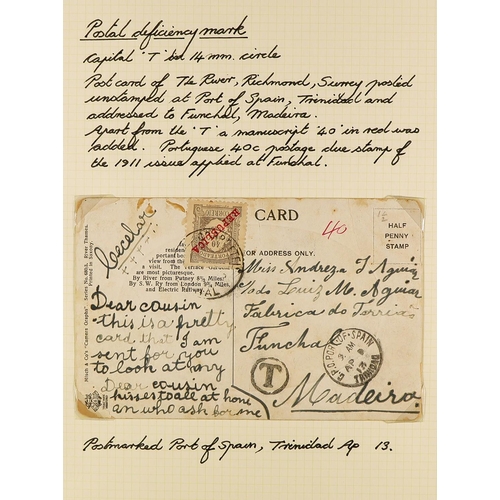 Postal deficiency mark
Capital 'T' in 14 mm. circle
Post card of The River, Richmond, Surrey posted
unstamped at Port of Spain, Trinidad and
addressed to Funchal, Madeira.
Apart from the 'T' a manuscript '40' in red was
added. Portuguese 40c postage due stamp of
the 1911 issue applied at Funchal.
CARD
HALF
PENNY
STAMP
40
OR ADDRESS ONLY.
REPUBLICA
are most picturesque.
By River from Putney 8½ Miles:
By S.W. Ry from London 9¾ Miles,
and Electric Railway.
Dear cousin
this is a pretty
card that I am
sent for you
to look at my
Dear cousin
kisses to all at home
an who ask for me
Miss Andreza J Aguiar
Luiz M. Aguiar
Fabrica do Torrião
Funchal
Madeira
T
G.P.O. PORT-OF-SPAIN
AM
AP 8
13
TRINIDAD
Postmarked Port of Spain, Trinidad Ap 13.